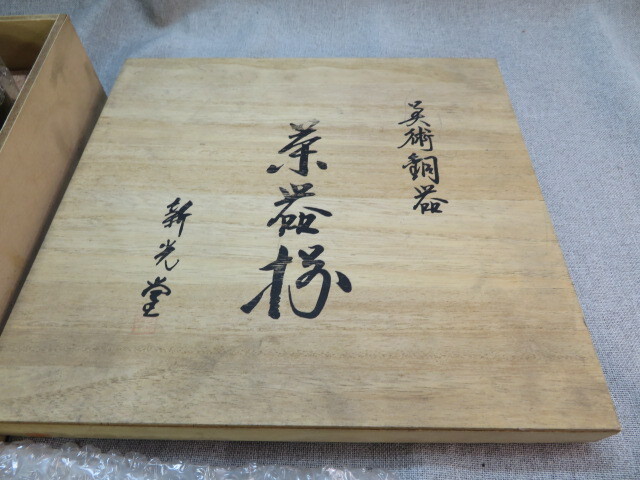 美術銅器
茶器揃
新光堂